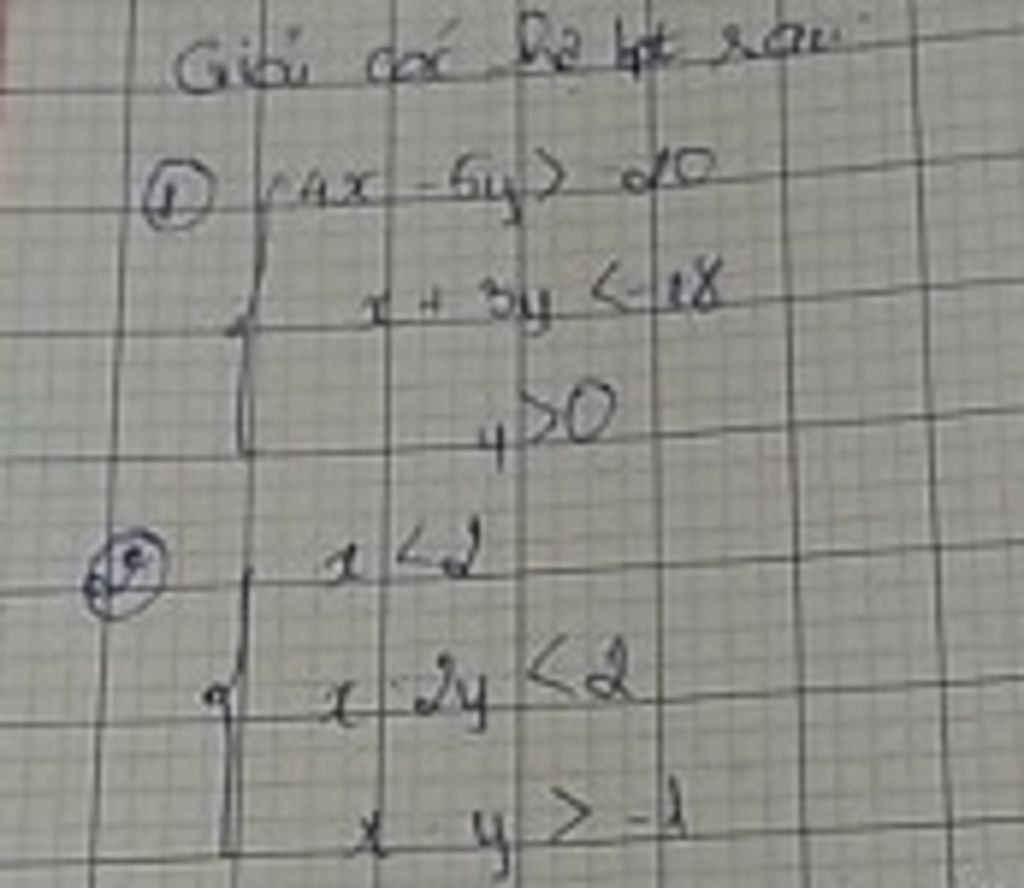 Giải các hệ bpt sau:
① 4x - 5y > 20
x + 3y < -18
y > 0
② x < 2
x - 2y < 2
x - y > -1